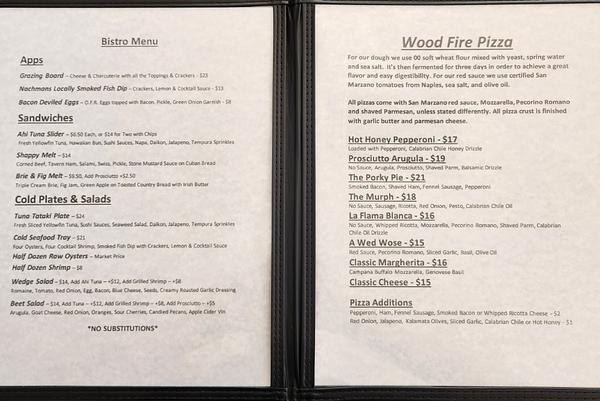 Bistro Menu
Apps
Grazing Board – Cheese & Charcuterie with all the Toppings & Crackers - $23
Nachmans Locally Smoked Fish Dip – Crackers, Lemon & Cocktail Sauce - $13
Bacon Deviled Eggs – O.F.R. Eggs topped with Bacon, Pickle, Green Onion Garnish - $8
Sandwiches
Ahi Tuna Slider – $6.50 Each, or $14 for Two with Chips
Fresh Yellowfin Tuna, Hawaiian Bun, Sushi Sauces, Napa, Daikon, Jalapeno, Tempura Sprinkles
Shappy Melt – $14
Corned Beef, Tavern Ham, Salami, Swiss, Pickle, Stone Mustard Sauce on Cuban Bread
Brie & Fig Melt – $9.50, Add Prosciutto +$2.50
Triple Cream Brie, Fig Jam, Green Apple on Toasted Country Bread with Irish Butter
Cold Plates & Salads
Tuna Tataki Plate – $24
Fresh Sliced Yellowfin Tuna, Sushi Sauces, Seaweed Salad, Daikon, Jalapeno, Tempura Sprinkles
Cold Seafood Tray – $21
Four Oysters, Four Cocktail Shrimp, Smoked Fish Dip with Crackers, Lemon & Cocktail Sauce
Half Dozen Raw Oysters – Market Price
Half Dozen Shrimp – $8
Wedge Salad – $14, Add Ahi Tuna – +$12, Add Grilled Shrimp – +$8
Romaine, Tomato, Red Onion, Egg, Bacon, Blue Cheese, Seeds, Creamy Roasted Garlic Dressing
Beet Salad – $14, Add Tuna – +$12, Add Grilled Shrimp – +$8, Add Prosciutto – +$5
Arugula, Goat Cheese, Red Onion, Oranges, Sour Cherries, Candied Pecans, Apple Cider Vin
*NO SUBSTITUTIONS*
Wood Fire Pizza
For our dough we use 00 soft wheat flour mixed with yeast, spring water
and sea salt. It's then fermented for three days in order to achieve a great
flavor and easy digestibility. For our red sauce we use certified San
Marzano tomatoes from Naples, sea salt, and olive oil.
All pizzas come with San Marzano red sauce, Mozzarella, Pecorino Romano
and shaved Parmesan, unless stated differently. All pizza crust is finished
with garlic butter and parmesan cheese.
Hot Honey Pepperoni - $17
Loaded with Pepperoni, Calabrian Chile Honey Drizzle
Prosciutto Arugula - $19
No Sauce, Arugula, Prosciutto, Shaved Parm, Balsamic Drizzle
The Porky Pie - $21
Smoked Bacon, Shaved Ham, Fennel Sausage, Pepperoni
The Murph - $18
No Sauce, Sausage, Ricotta, Red Onion, Pesto, Calabrian Chile Oil
La Flama Blanca - $16
No Sauce, Whipped Ricotta, Mozzarella, Pecorino Romano, Shaved Parm, Calabrian
Chile Oil Drizzle
A Wed Wose - $15
Red Sauce, Pecorino Romano, Sliced Garlic, Basil, Olive Oil
Classic Margherita - $16
Campana Buffalo Mozzarella, Genovese Basil
Classic Cheese - $15
Pizza Additions
Pepperoni, Ham, Fennel Sausage, Smoked Bacon or Whipped Ricotta Cheese - $2
Red Onion, Jalapeno, Kalamata Olives, Sliced Garlic, Calabrian Chile or Hot Honey - $1